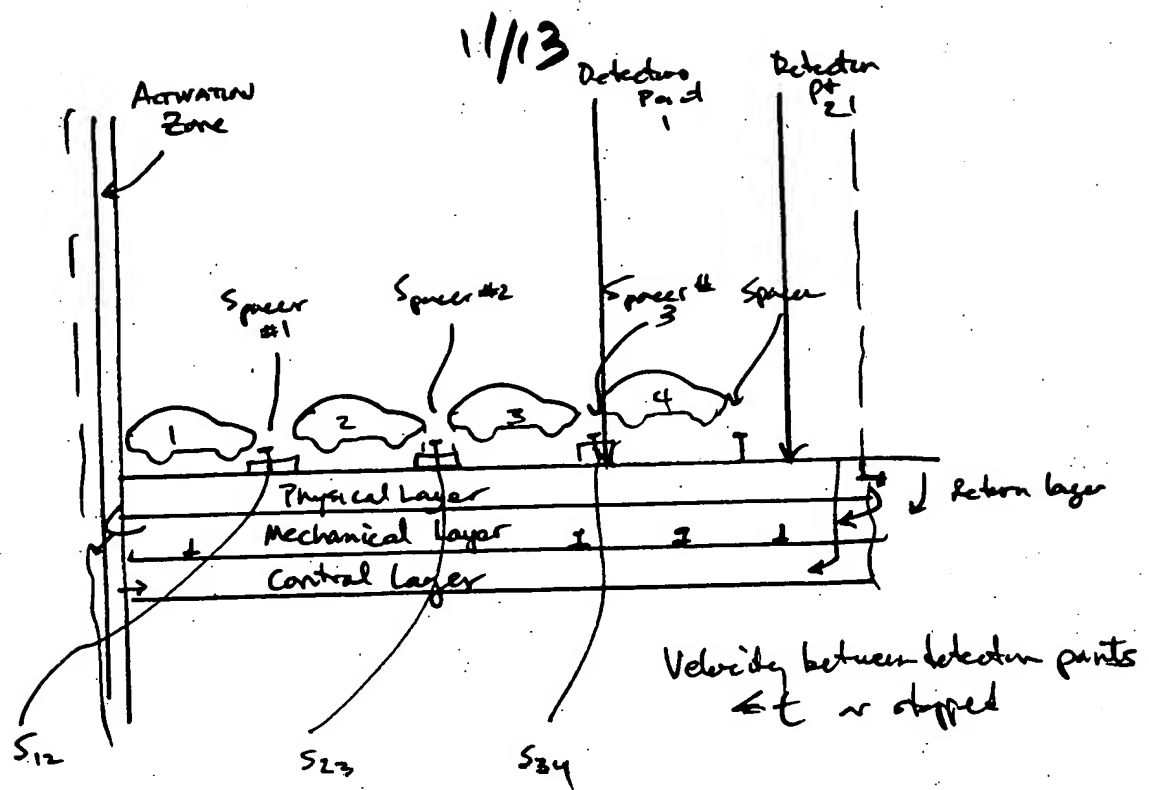 11/13
Activation
Zone
Detection
Point
1
Detection
pt
2
Spacer
#1
Spacer #2
Spacer #
3
Spacer
1
2
3
4
Physical Layer
Mechanical Layer
Control Layer
Return layer
Velocity between detection points
stopped
S12
S23
S34